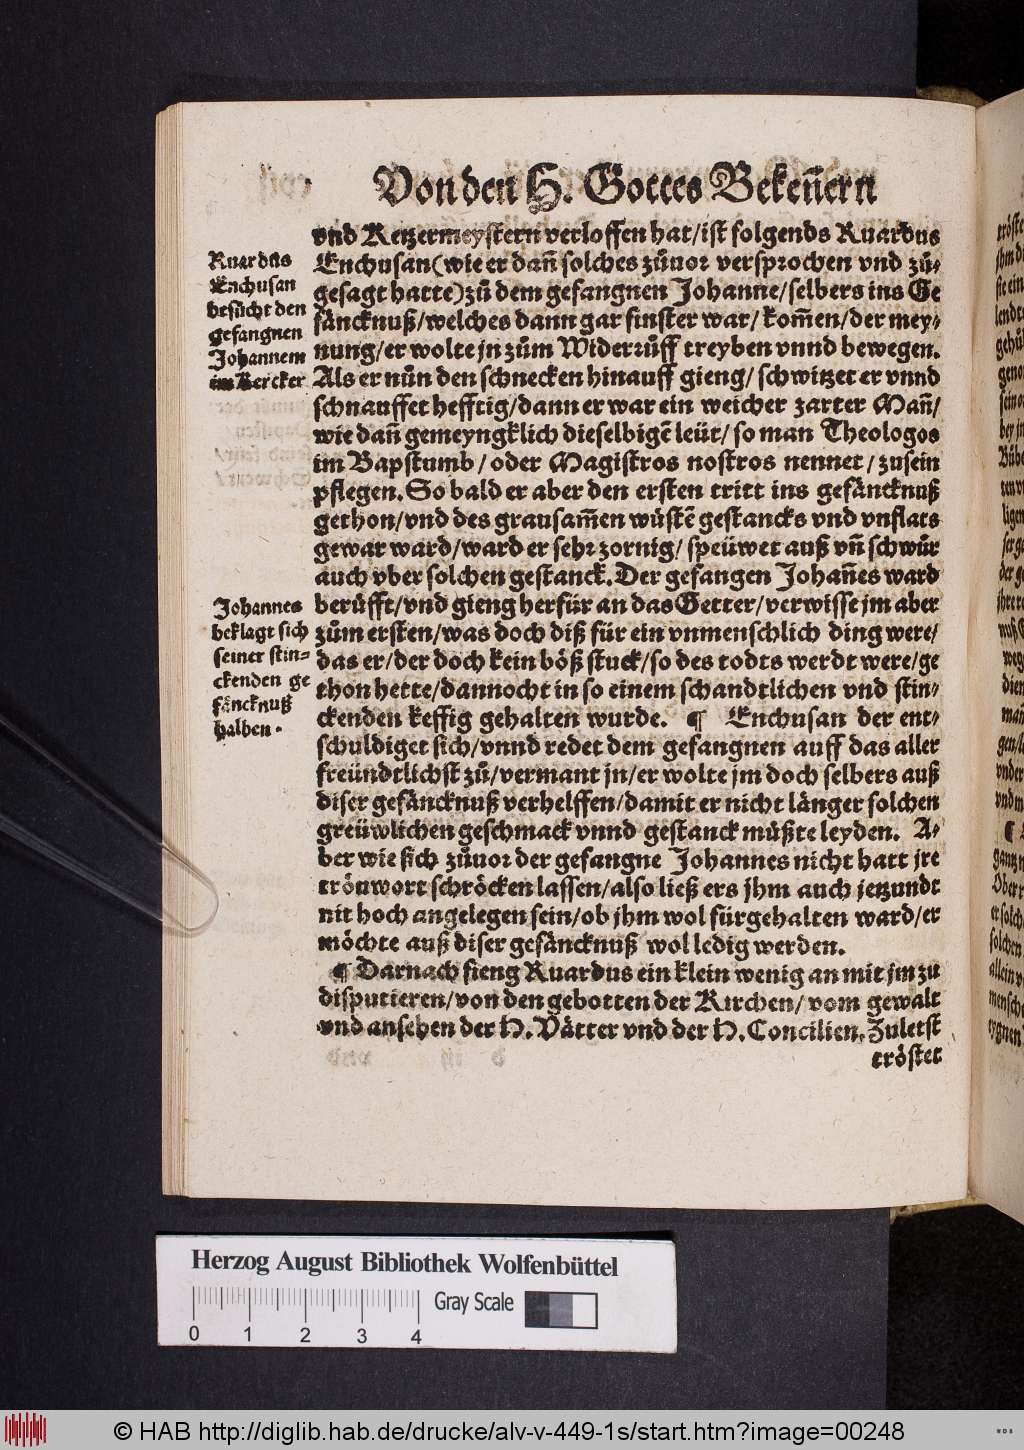 Von den H. Gottes Bekeñern
vnd Ketzermeystern verloffen hat/ist folgends Ruardus
Enchusan(wie er dañ solches zůuor versprochen vnd zů-
gesagt hatte)zů dem gefangnen Johanne/selbers ins Ge
fäncknuß/welches dann gar finster war/kom̃en/der mey-
nung/er wolte jn zům Widerrůff treyben vnnd bewegen.
Als er nůn den schnecken hinauff gieng/schwitzet er vnnd
schnauffet hefftig/dann er war ein weicher zarter Mañ/
wie dañ gemeyngklich dieselbigẽ leüt/so man Theologos
im Bapstumb/oder Magistros nostros nennet/zusein
pflegen. So bald er aber den ersten tritt ins gefäncknuß
gethon/vnd des grausam̃en wüstẽ gestancks vnd vnflats
gewar ward/ward er sehr zornig/speüwet auß vñ schwůr
auch vber solchen gestanck. Der gefangen Johañes ward
berüfft/vnd gieng herfür an das Getter/verwisse jm aber
zům ersten/was doch diß für ein vnmenschlich ding were/
das er/der doch kein böß stuck/so des todts werdt were/ge
thon hette/dannocht in so einem schandtlichen vnd stin-
ckenden keffig gehalten wurde. ¶ Enchusan der ent-
schuldiget sich/vnnd redet dem gefangnen auff das aller
freündtlichst zů/vermant jn/er wolte jm doch selbers auß
diser gefäncknuß verhelffen/damit er nicht länger solchen
greüwlichen geschmack vnnd gestanck müßte leyden. A-
ber wie sich zůuor der gefangne Johannes nicht hatt jre
tröuwort schröcken lassen/also ließ ers jhm auch jetzundt
nit hoch angelegen sein/ob jhm wol fürgehalten ward/er
möchte auß diser gefäncknuß wol ledig werden.
¶ Darnach fieng Ruardus ein klein wenig an mit jm zu
disputieren/von den gebotten der Kirchen/vom gewalt
vnd ansehen der H. Vätter vnd der H. Concilien. Zuletst
tröstet
Ruardus
Enchusan
besücht den
gefangnen
Johannem
im Kercker
Johannes
beklagt sich
seiner stin-
ckenden ge
fäncknuß
halben.
Herzog August Bibliothek Wolfenbüttel
Gray Scale
0 1 2 3 4
© HAB http://diglib.hab.de/drucke/alv-v-449-1s/start.htm?image=00248